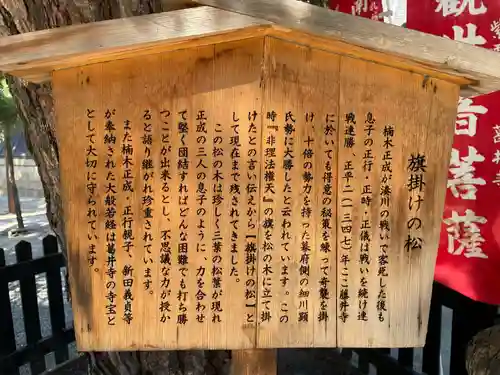 旗掛けの松
楠木正成が湊川の戦いで客死した後も
息子の正行・正時・正儀は戦いを続け連
戦連勝、正平二(一三四七)年ここ藤井寺
に於いても得意の秘策を練って奇襲を掛
け、十倍の勢力を持つた幕府側の細川顕
氏勢に大勝したと云われています。この
時『非理法権天』の旗を松の木に立て掛
けたとの言い伝えから「旗掛けの松」と
して現在まで残されてきました。
この松の木は珍しく三葉の松葉が現れ
正成の三人の息子のように、力を合わせ
て堅く団結すればどんな困難でも打ち勝
つことが出来るとし、不思議な力が授か
ると語り継がれ珍重されています。
また楠木正成・正行親子、新田義貞等
が奉納された大般若経は葛井寺の寺宝と
として大切に守られています。
観
音
菩
薩